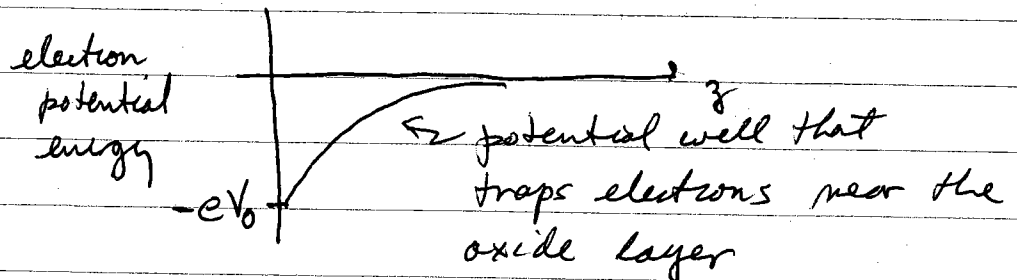 electron
potential
energy
z
potential well that
traps electrons near the
-eV₀
oxide layer